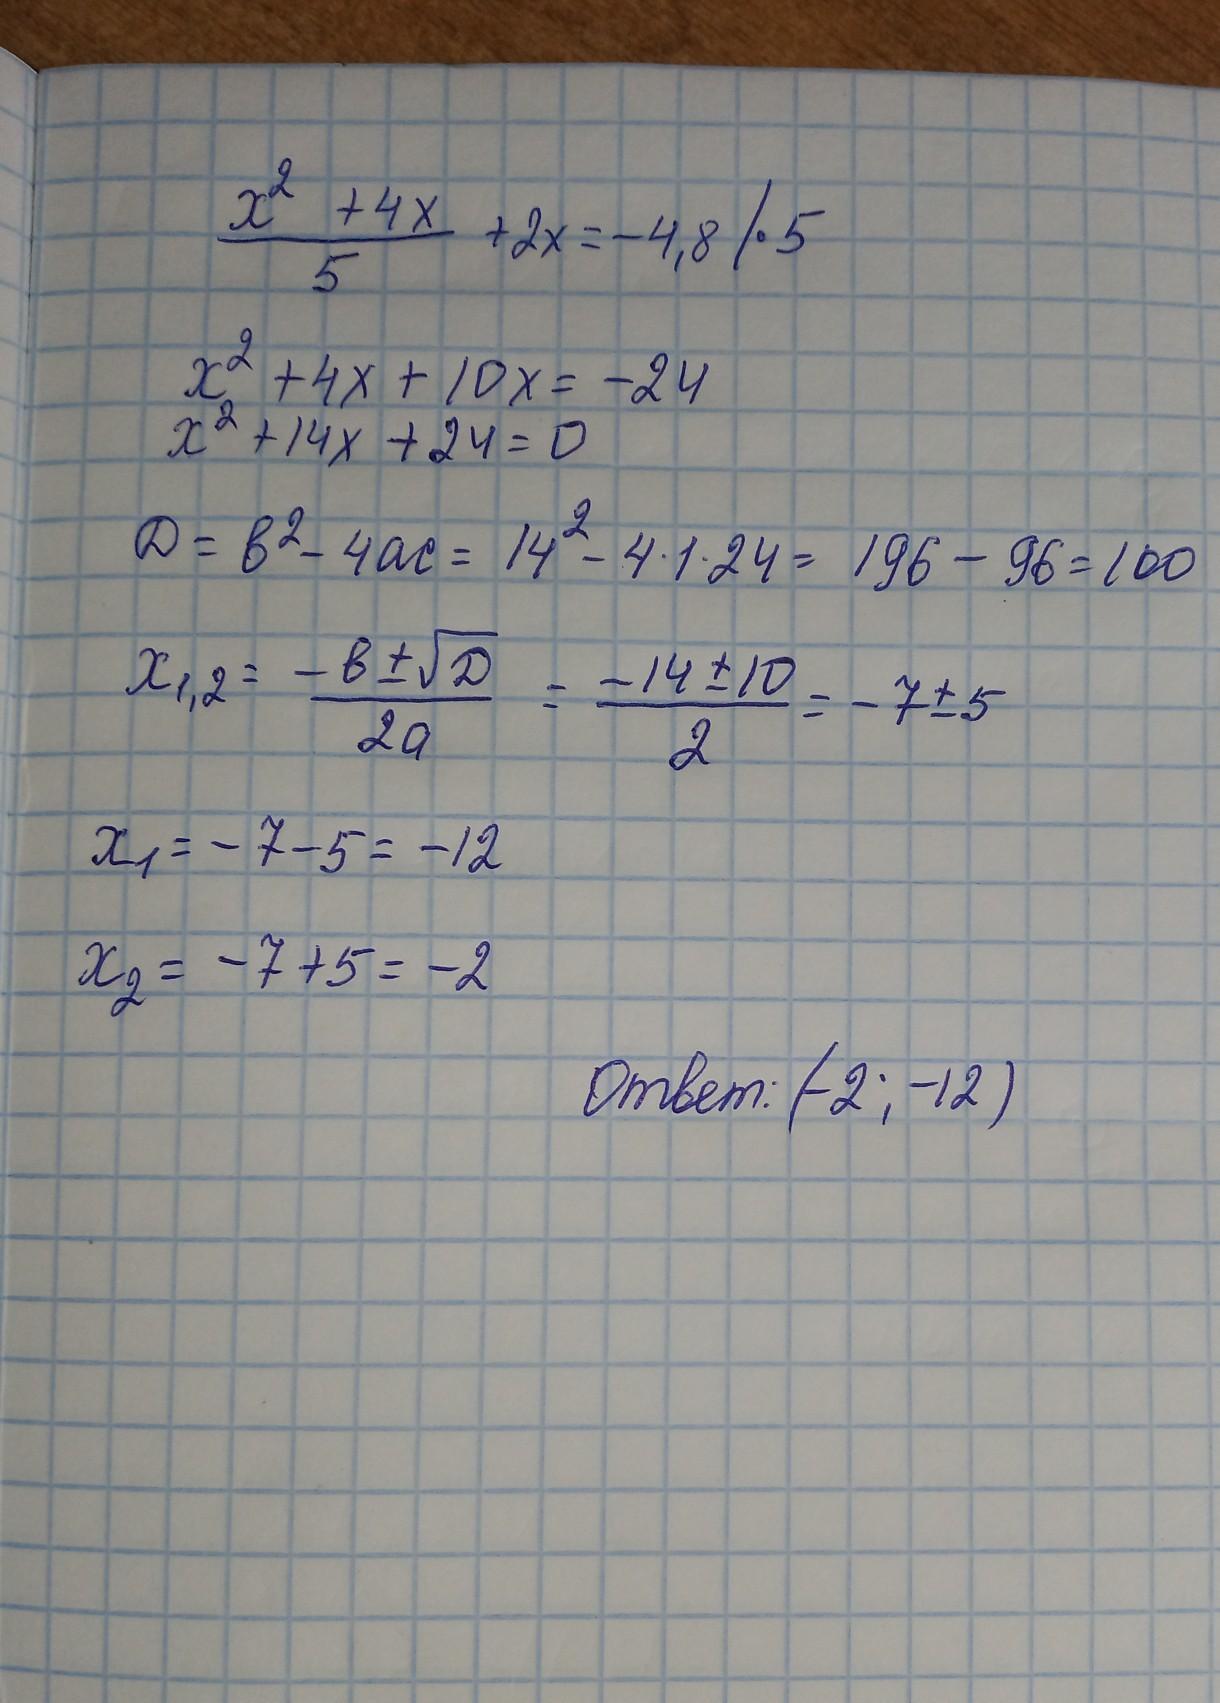 x² + 4x / 5 + 2x = -4,8 / · 5
x² + 4x + 10x = -24
x² + 14x + 24 = 0
D = b² - 4ac = 14² - 4·1·24 = 196 - 96 = 100
x₁,₂ = -b ± √D / 2a = -14 ± 10 / 2 = -7 ± 5
x₁ = -7 - 5 = -12
x₂ = -7 + 5 = -2
Ответ: (-2; -12)